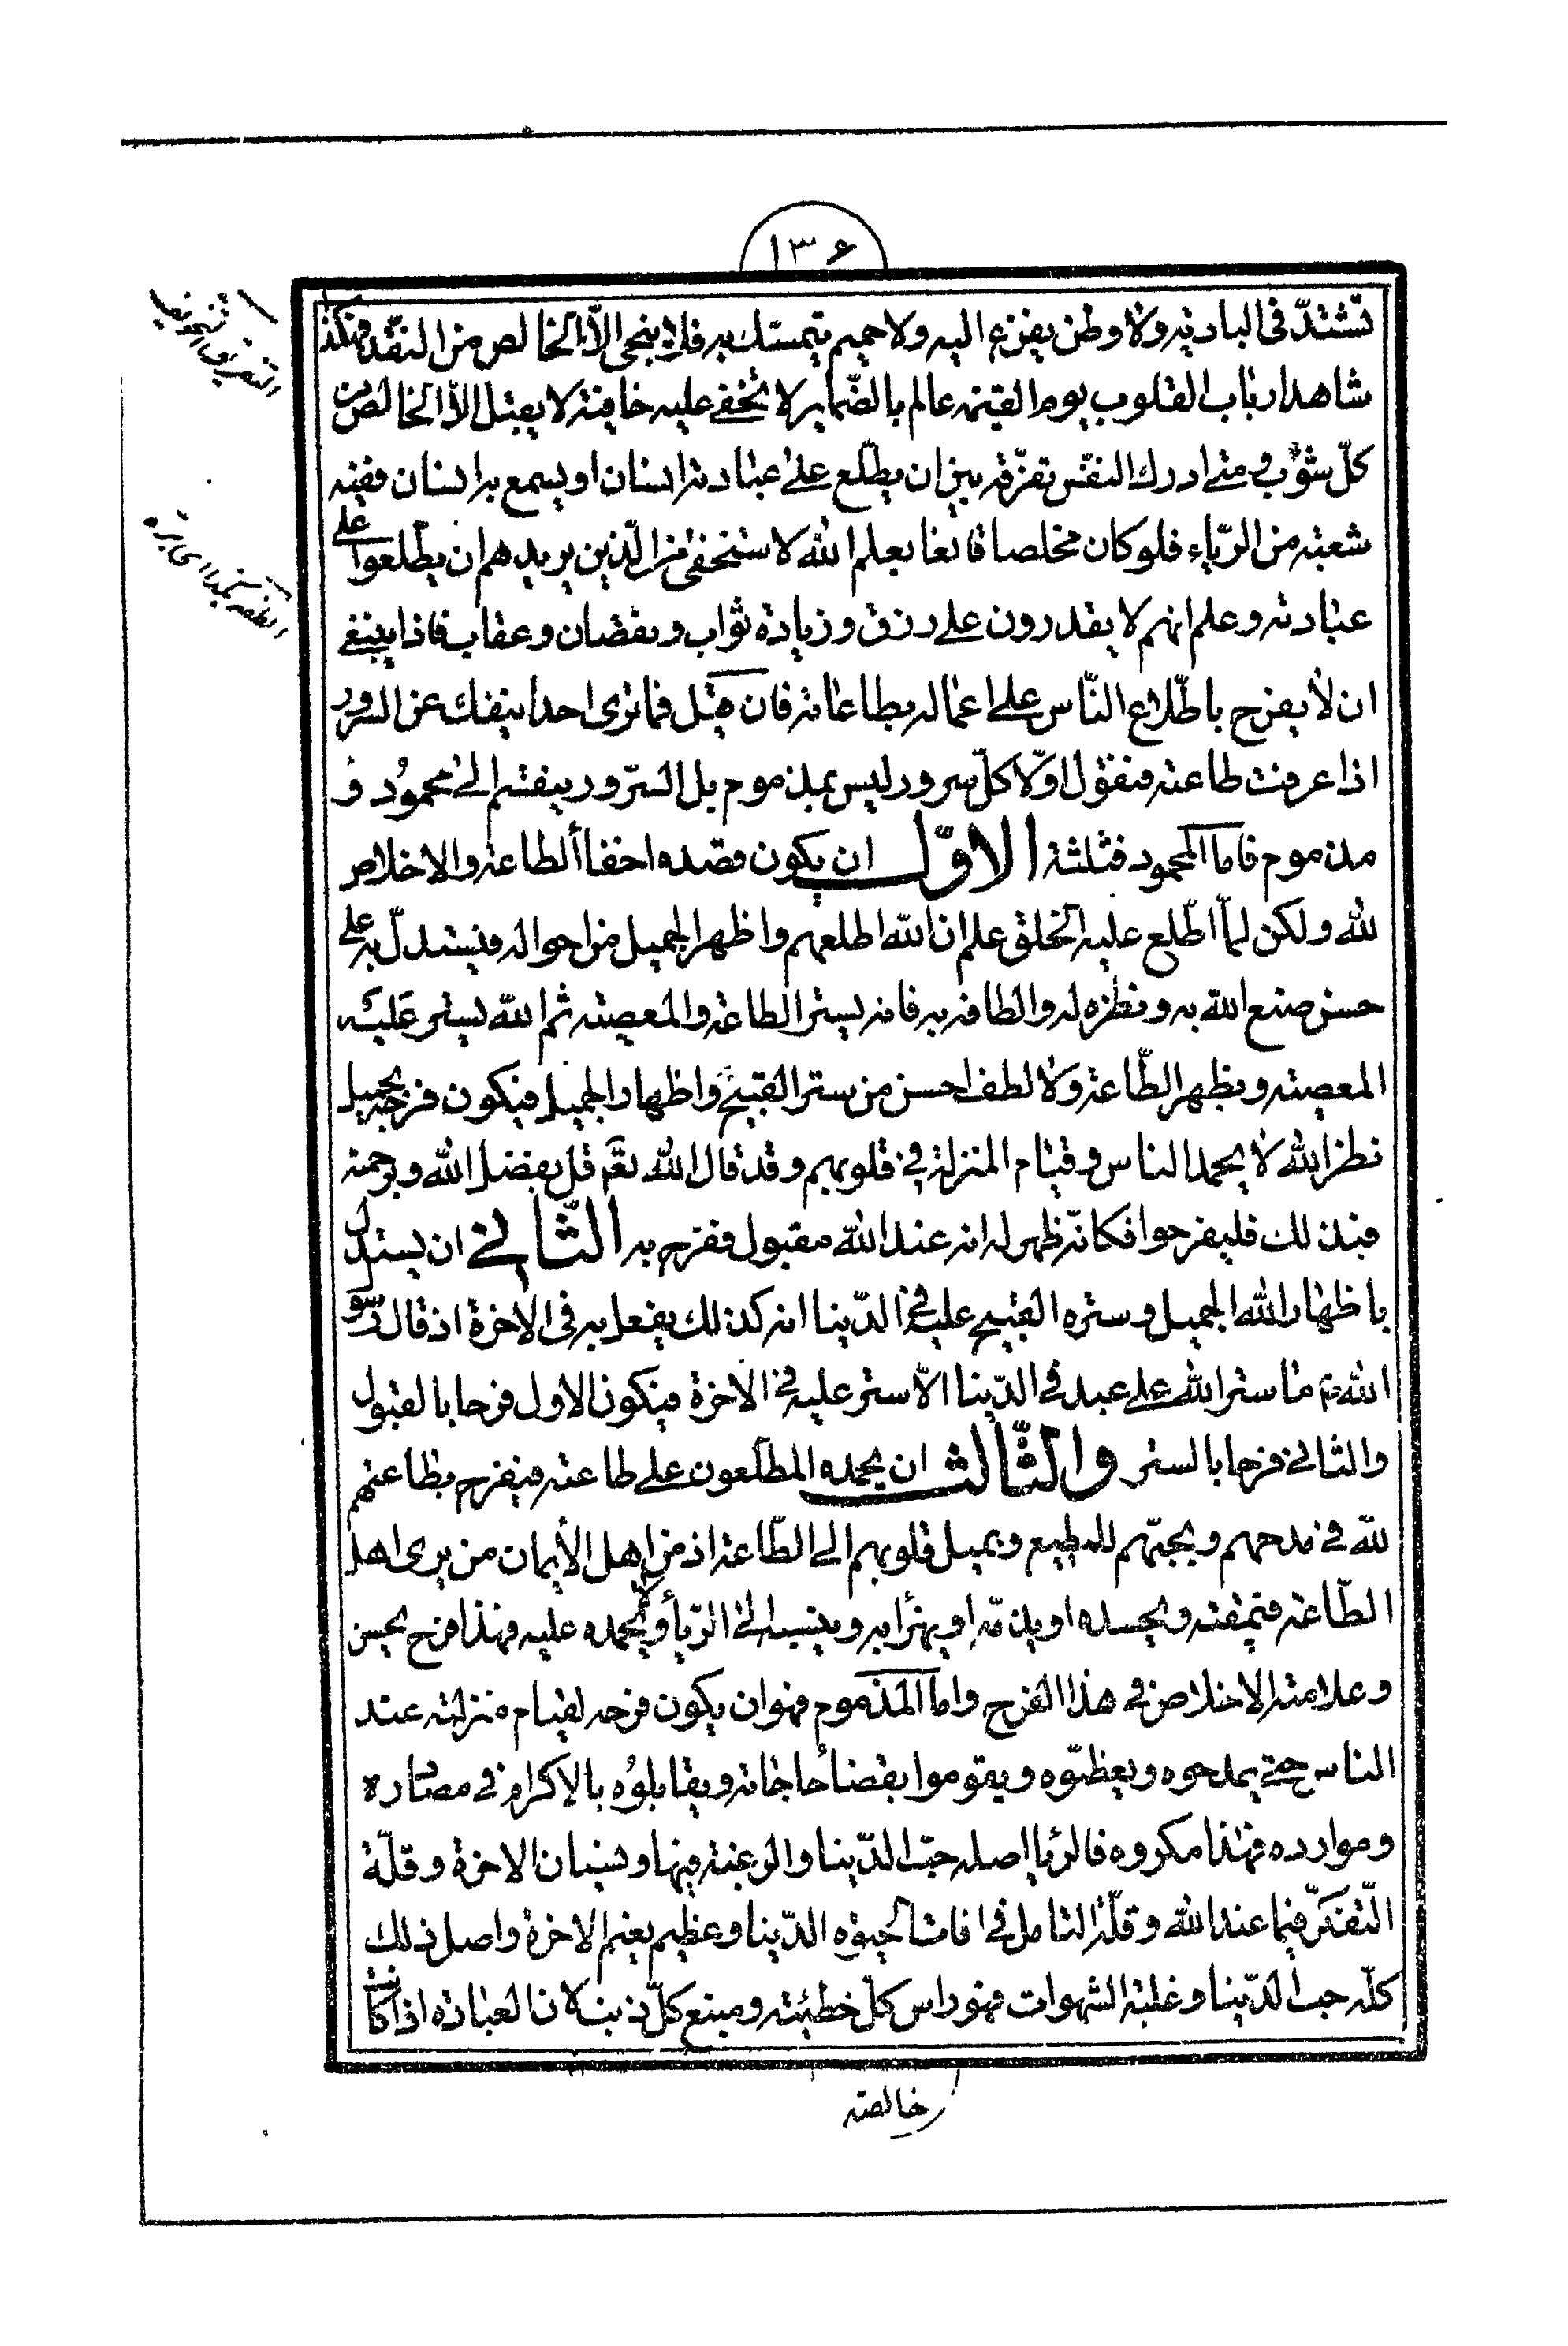 ۱۳۶
تشتدّ فى البادية ولا وطن يفزع اليه ولا حميم يتمسّك به فلا ينجى الاّ الخالص من النقد فهكذا
شاهد ارباب القلوب يوم القيمة عالم بالضّماير لا تخفى عليه خافية لا يقبل الاّ الخالص من
كلّ شوب و متى ادرك النفس تفرقة بين ان يطّلع على عبادته انسان او يسمع به انسان ففيه
شعبة من الريّاء فلو كان مخلصا قانعا بعلم الله لاستخفى من الّذين يريد هم ان يطّلعوا على
عبادته و علم انهم لا يقدرون على رزق و زيادة ثواب و نقصان و عقاب فاذا ينبغى
ان لا يفرح باطّلاع النّاس على اعماله بطاعاته فان قيل فما نرى احدا ينفك عن السرور
اذا عرفت طاعته فنقول اوّلا كلّ سرور ليس بمذموم بل السّرور ينقسم الى محمود و
مذموم فاما المحمود فثلثة الاوّل ان يكون قصده اخفأ الطاعة والاخلاص
لله ولكن لمّا اطّلع عليه الخلق علم ان الله اطلعهم واظهر الجميل من احواله فيستدلّ به على
حسن صنع الله به و نظره له والطافه به فانه يستر الطاعة والمعصية ثم الله يستر عليه
المعصية ويظهر الطّاعة ولا لطف احسن من ستر القبيح واظهار الجميل فيكون فرحه بجميل
نظر الله لا بحمد الناس و قيام المنزلة فى قلوبهم و قد قال الله تعم قل بفضل الله وبرحمته
فبذلك فليفرحوا فكانّه ظهر له انه عند الله مقبول ففرح به الثّانى ان يستدل
باظهار الله الجميل و ستره القبيح عليه فى الدّنيا انه كذلك يفعل به فى الاخرة اذ قال رسول
الله ما ستر الله على عبد فى الدّنيا الاّ ستر عليه فى الاخرة فيكون الاول فرحا بالقبول
والثانى فرحا بالستر والثّالث ان يحمده المطّلعون على طاعته فيفرح بطاعتهم
لله فى مدحهم و بحبّهم للمطيع و بميل قلوبهم الى الطّاعة اذ من اهل الأيمان من يرى اهل
الطّاعة فيمقته و يحسده او يذمّه او يهزأ به و ينسبه الى الريّأ و لا يحمده عليه فهذا فرح بحسن
و علامته الاخلاص فى هذا الفرح واما المذموم فهو ان يكون فرحه لقيام منزلته عند
الناس حتى يمدحوه و يعظّموه و يقوموا بقضأ حاجاته و يقابلوه بالاكرام فى مصادره
و موارده فهذا مكروه فالريا اصله حبّ الدّنيا والرغبة فيها و نسيان الاخرة و قلّة
التّفكّر فيما عند الله و قلّة التامل فى افات الحيوة الدّنيا و عظيم نعيم الاخرة واصل ذلك
كلّه حب الدّنيا و غلبة الشهوات فهو راس كلّ خطيئة و منبع كلّ ذنب لان العبادة اذا كانت
خالصة